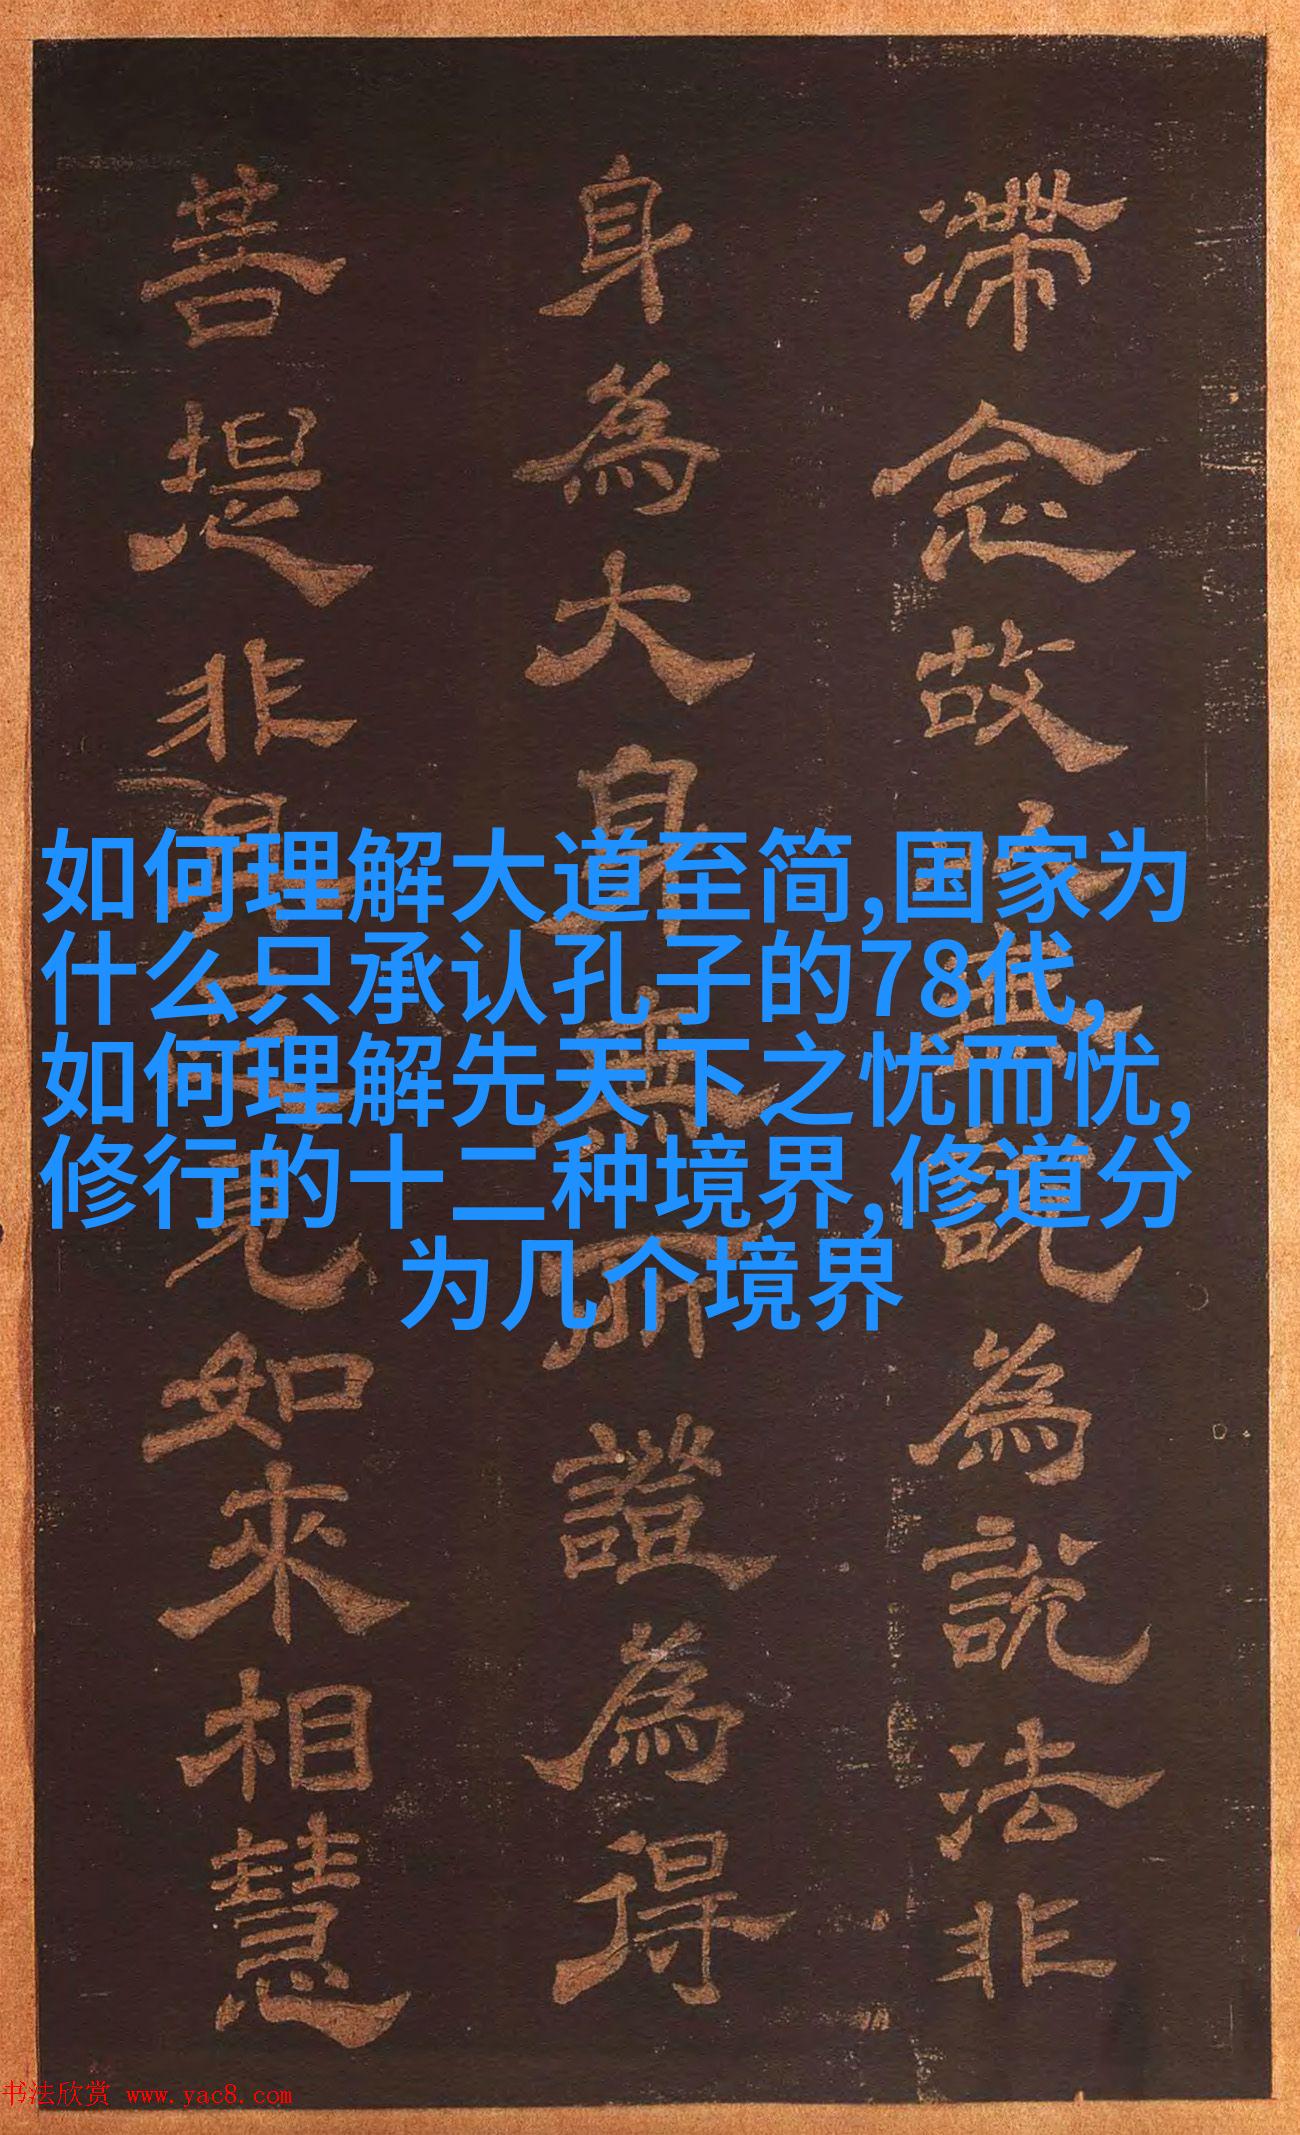 滯念故以無說為說法非
身為大身無所證為得
菩提非見如來相慧
如何理解大道至简,国家为
什么只承认孔子的78代,
如何理解先天下之忧而忧,
修行的十二种境界,修道分
为几个境界
书法欣赏 www.yac8.com